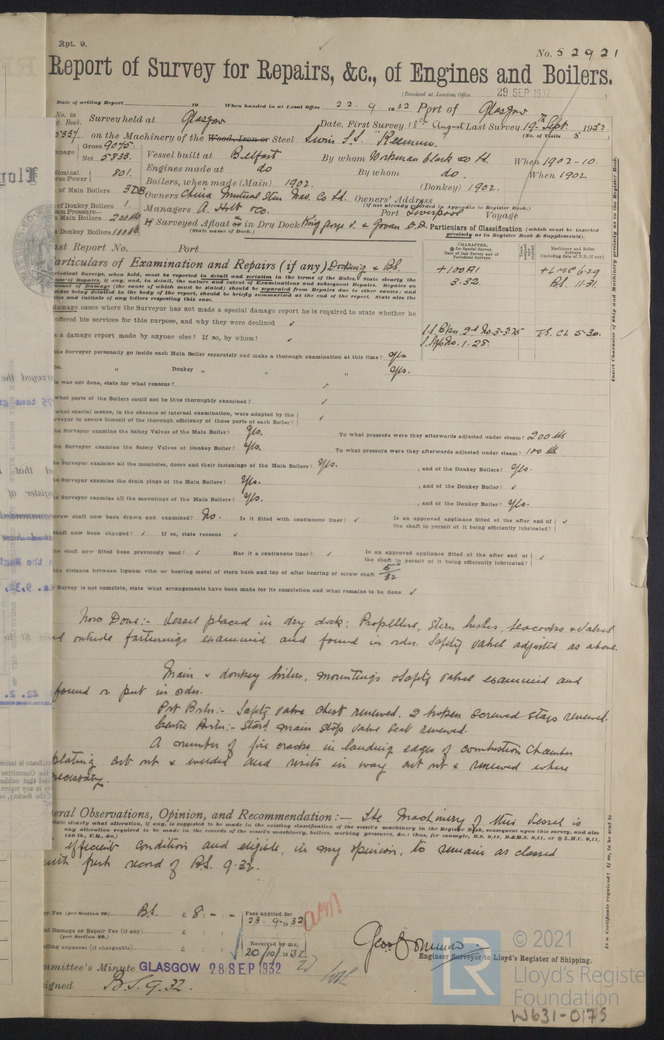 Rpt. 9.
No. 52921
Report of Survey for Repairs, &c., of Engines and Boilers.
(Received at London Office 29 SEP 1932
Date of writing Report 19 When handed in at Local Office 22.9.1932 Port of Glasgow
No. in
Survey held at Glasgow Date, First Survey 18th August Last Survey 19th Sept 1932
(No. of Visits 5
on the Machinery of the Wood, Iron or Steel S.S.
Gross 9075
Net 5833
Vessel built at Belfast By whom Workman Clark Co Ld When 1902-10
Engines made at do By whom do. When 1902
801.
Boilers, when made (Main) 1902. (Donkey) 1902.
of Main Boilers 3DB
Owners China Mutual Steam Nav. Co Ld. Owners' Address
(if not already recorded in Appendix to Register Book.)
of Donkey Boilers 1.
Managers A. Holt & Co. Port Liverpool Voyage
Main Boilers 200 lbs
Donkey Boilers 100 lbs
If Surveyed Afloat or in Dry Dock & Govan D.D.
(State name of Dock.)
Particulars of Classification (which must be inserted precisely as in Register Book & Supplements).
Last Report No. Port
Particulars of Examination and Repairs (if any) Docking & BS.
+100A1
3.32
+LMC 6.29
BS. 11.31
T.S. CL 5.30
damage cases where the Surveyor has not made a special damage report he is required to state whether he
offered his services for this purpose, and why they were declined ✓
a damage report made by anyone else? If so, by whom? ✓
the Surveyor personally go inside each Main Boiler separately and make a thorough examination at this time? Yes
" Donkey " " " Yes.
was not done, state for what reasons? ✓
what parts of the Boilers could not be thus thoroughly examined? ✓
what special means, in the absence of internal examination, were adopted by the
Surveyor to assure himself of the thorough efficiency of those parts of each Boiler? ✓
the Surveyor examine the Safety Valves of the Main Boiler? Yes. To what pressure were they afterwards adjusted under steam? 200 lbs
the Surveyor examine the Safety Valves of Donkey Boiler? Yes. To what pressure were they afterwards adjusted under steam? 100 lbs
the Surveyor examine all the manholes, doors and their fastenings of the Main Boilers? Yes. , and of the Donkey Boilers? Yes.
the Surveyor examine the drain plugs of the Main Boilers? Yes. , and of the Donkey Boiler? ✓
the Surveyor examine all the mountings of the Main Boilers? Yes. , and of the Donkey Boiler? Yes.
screw shaft now been drawn and examined? No. Is it fitted with continuous liner? ✓ Is an approved appliance fitted at the after end of the shaft to permit of it being efficiently lubricated? ✓
shaft now been changed? ✓ If so, state reasons ✓
the shaft now fitted been previously used? ✓ Has it a continuous liner? ✓ Is an approved appliance fitted at the after end of the shaft to permit of it being efficiently lubricated? ✓
the distance between lignum vitæ or bearing metal of stern bush and top of after bearing of screw shaft 5/32
Survey is not complete, state what arrangements have been made for its completion and what remains to be done. ✓
Now Done:- Vessel placed in dry dock; Propellers, stern bushes, seacocks & valves
outside fastenings examined and found in order. Safety valves adjusted as above.
Main & donkey boilers, mountings & safety valves examined and
found or put in order.
Port Boiler:- Safety valve chest renewed. 2 broken screwed stays renewed.
Centre Boiler:- Starbd main stop valve seat renewed.
A number of fire cracks in landing edges of combustion chamber
plating cut out & welded and rivets in way cut out & renewed where
necessary.
General Observations, Opinion, and Recommendation:— The Machinery of this Vessel is
efficient condition and eligible, in my opinion, to remain as classed
with fresh record of B.S. 9.32.
Fee (per Section 29) BS. £ 8:–:– Fees applied for
23.9.1932
Damage or Repair Fee (if any) £ : :
(per Section 29.)
expenses (if chargeable) £ : : Received by me,
20/10/1932
Engineer Surveyor to Lloyd's Register of Shipping.
Committee's Minute GLASGOW 28 SEP 1932
Assigned B.S. 9.32.
© 2021
Lloyd's Register
Foundation
W631-0175